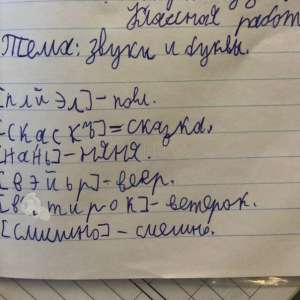 Классная работ
Тема: звуки и буквы.
[плйэл] – поял.
[скаскъ] = сказка,
[нань] – няня.
[вэйьр] – веер.
[в тирок] – ветерок.
[смишно] – смешно.